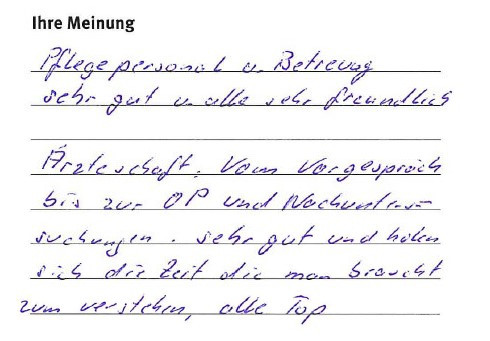 Ihre Meinung
Pflegepersonal u. Betreuung
sehr gut u. alle sehr freundlich
Ärzteschaft. Vom Vorgespräch
bis zur OP und Nachunter-
suchungen. sehr gut und
sich die Zeit die man braucht
zum verstehen, alle Top